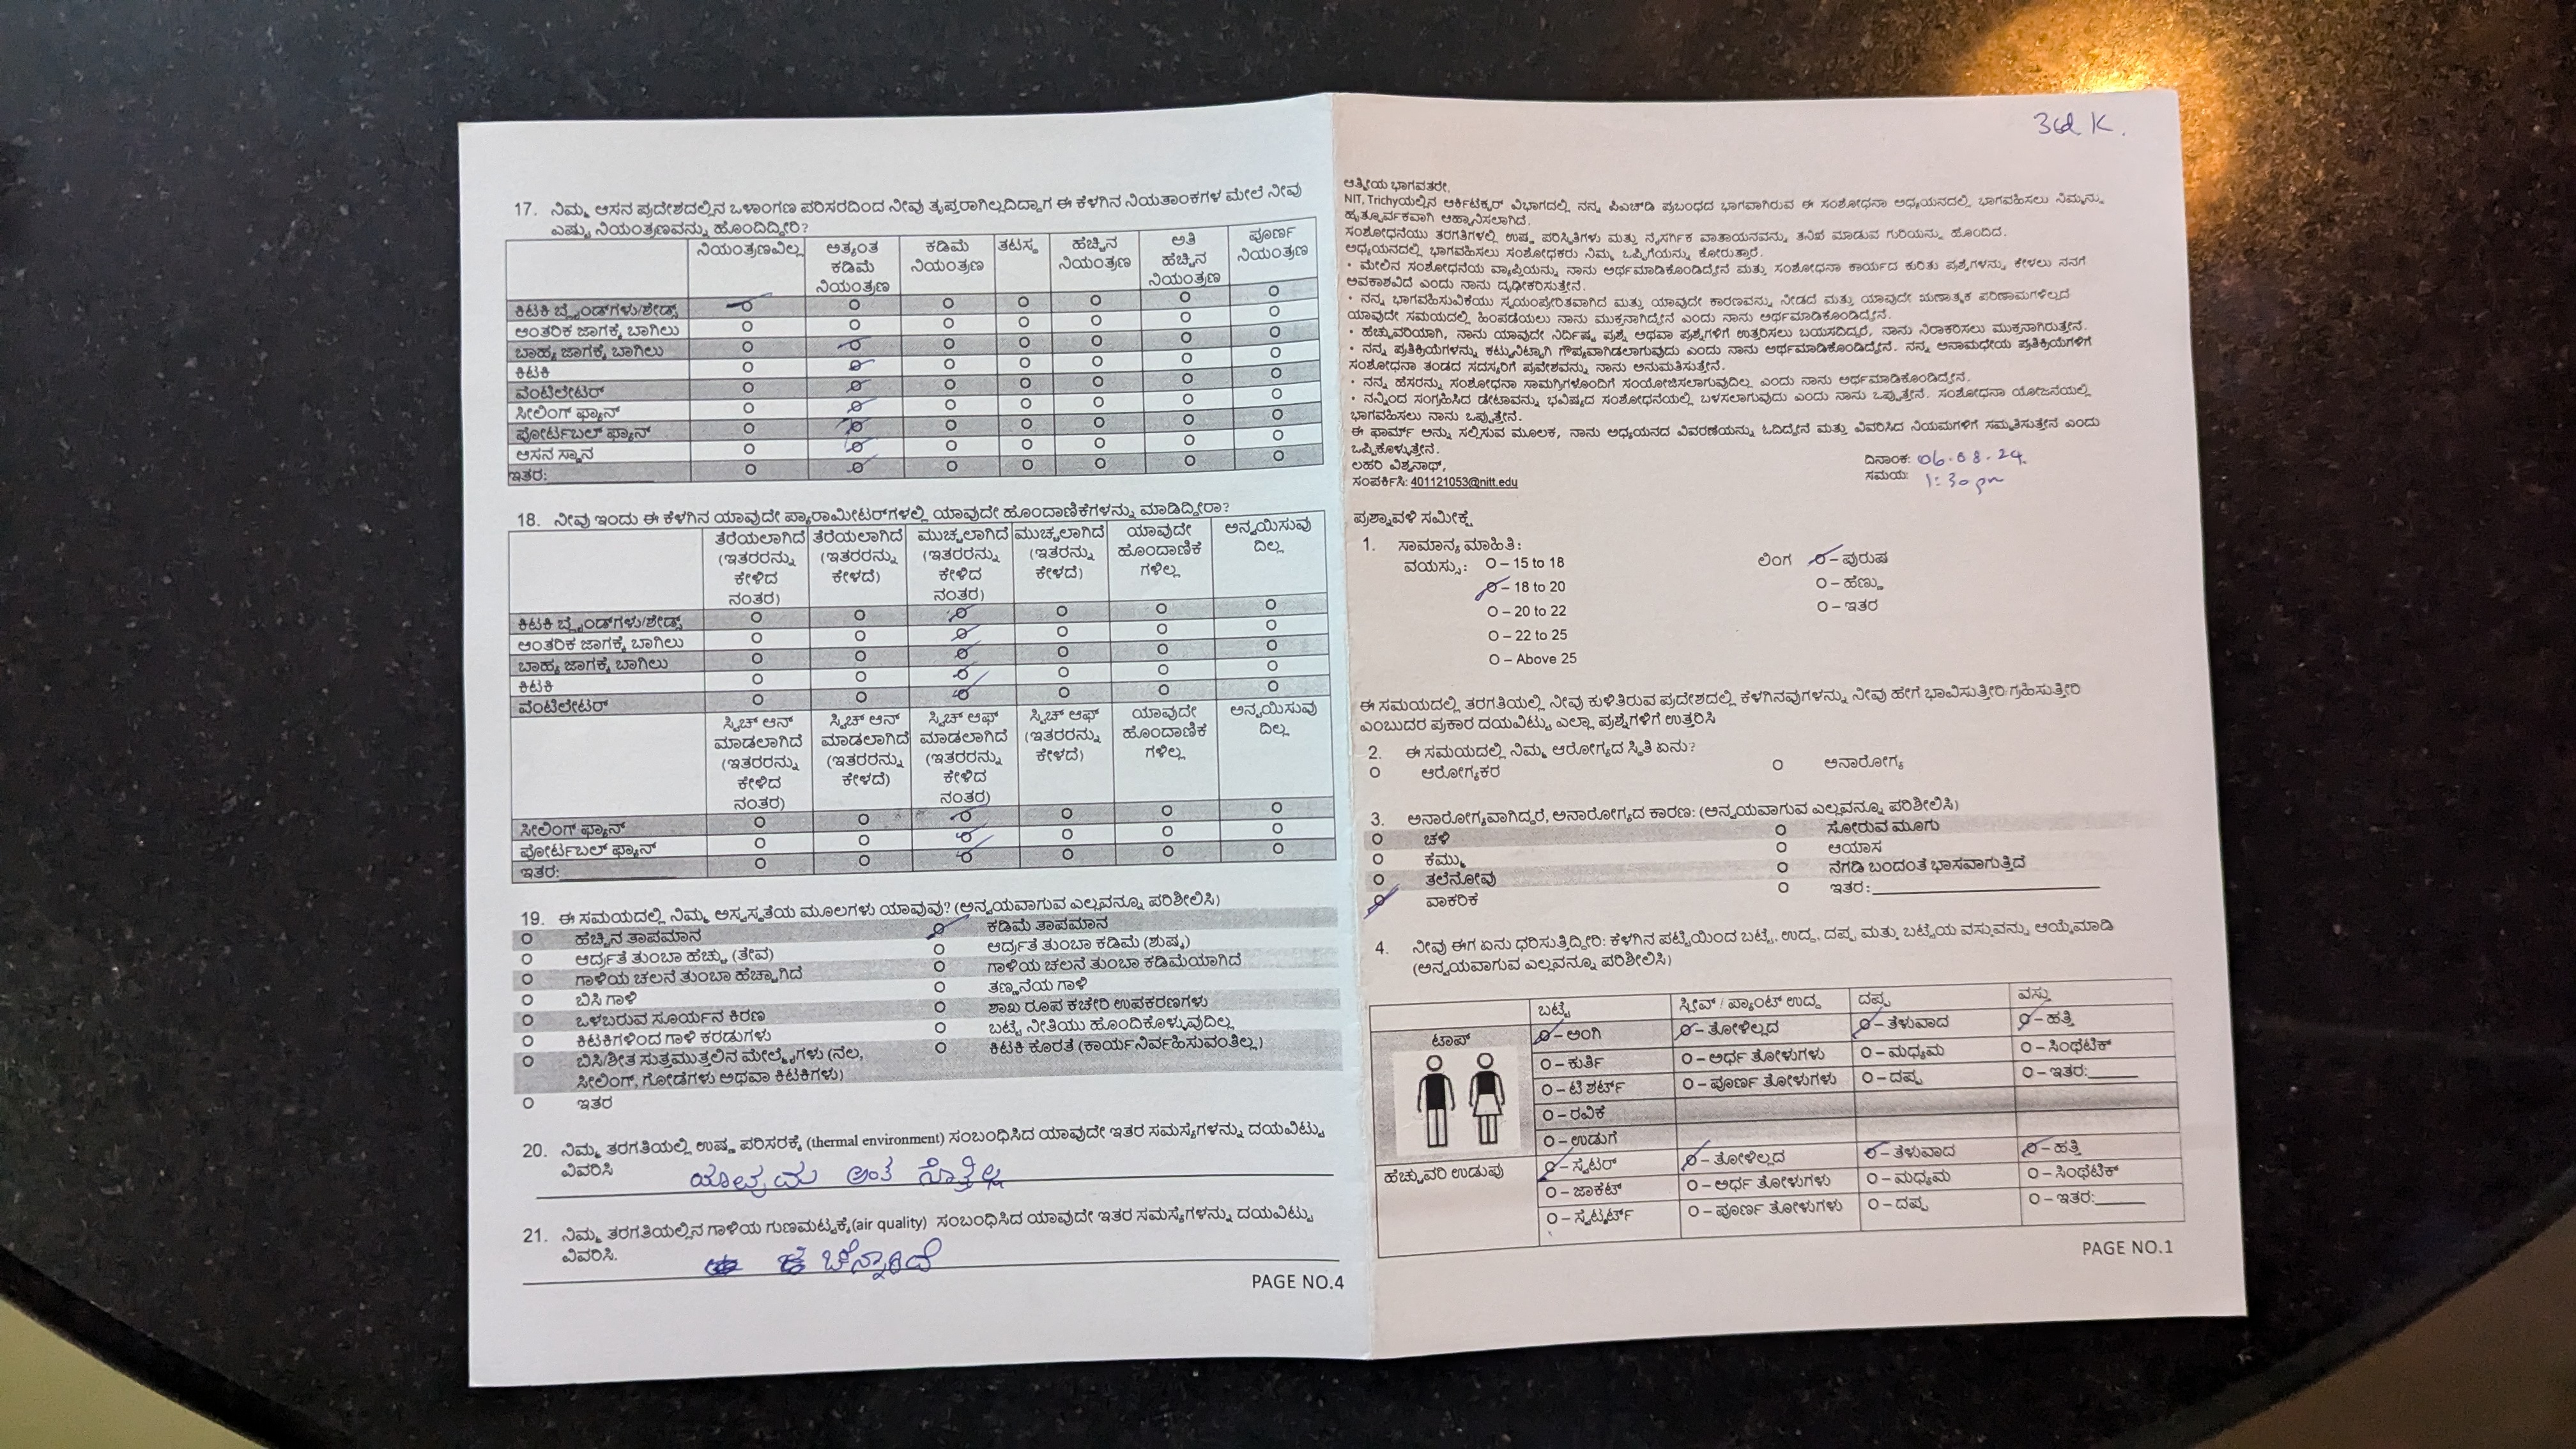 17. ನಿಮ್ಮ ಆಸನ ಪ್ರದೇಶದಲ್ಲಿನ ಒಳಾಂಗಣ ಪರಿಸರದಿಂದ ನೀವು ತೃಪ್ತರಾಗಿಲ್ಲದಿದ್ದಾಗ ಈ ಕೆಳಗಿನ ನಿಯತಾಂಕಗಳ ಮೇಲೆ ನೀವು
ಎಷ್ಟು ನಿಯಂತ್ರಣವನ್ನು ಹೊಂದಿದ್ದೀರಿ?
ನಿಯಂತ್ರಣವಿಲ್ಲ ಅತ್ಯಂತ ಕಡಿಮೆ ನಿಯಂತ್ರಣ ಕಡಿಮೆ ನಿಯಂತ್ರಣ ತಟಸ್ಥ ಹೆಚ್ಚಿನ ನಿಯಂತ್ರಣ ಅತಿ ಹೆಚ್ಚಿನ ನಿಯಂತ್ರಣ ಪೂರ್ಣ ನಿಯಂತ್ರಣ
ಕಿಟಕಿ ಬ್ಲೈಂಡ್‌ಗಳು/ಶೇಡ್ಸ್
ಆಂತರಿಕ ಜಾಗಕ್ಕೆ ಬಾಗಿಲು
ಬಾಹ್ಯ ಜಾಗಕ್ಕೆ ಬಾಗಿಲು
ಕಿಟಕಿ
ವೆಂಟಿಲೇಟರ್
ಸೀಲಿಂಗ್ ಫ್ಯಾನ್
ಪೋರ್ಟಬಲ್ ಫ್ಯಾನ್
ಆಸನ ಸ್ಥಾನ
ಇತರ:
18. ನೀವು ಇಂದು ಈ ಕೆಳಗಿನ ಯಾವುದೇ ಪ್ಯಾರಾಮೀಟರ್‌ಗಳಲ್ಲಿ ಯಾವುದೇ ಹೊಂದಾಣಿಕೆಗಳನ್ನು ಮಾಡಿದ್ದೀರಾ?
ತೆರೆಯಲಾಗಿದೆ (ಇತರರನ್ನು ಕೇಳಿದ ನಂತರ) ತೆರೆಯಲಾಗಿದೆ (ಇತರರನ್ನು ಕೇಳದೆ) ಮುಚ್ಚಲಾಗಿದೆ (ಇತರರನ್ನು ಕೇಳಿದ ನಂತರ) ಮುಚ್ಚಲಾಗಿದೆ (ಇತರನ್ನು ಕೇಳದೆ) ಯಾವುದೇ ಹೊಂದಾಣಿಕೆ ಗಳಿಲ್ಲ ಅನ್ವಯಿಸುವು ದಿಲ್ಲ
ಕಿಟಕಿ ಬ್ಲೈಂಡ್‌ಗಳು/ಶೇಡ್ಸ್
ಆಂತರಿಕ ಜಾಗಕ್ಕೆ ಬಾಗಿಲು
ಬಾಹ್ಯ ಜಾಗಕ್ಕೆ ಬಾಗಿಲು
ಕಿಟಕಿ
ವೆಂಟಿಲೇಟರ್
ಸ್ವಿಚ್ ಆನ್ ಮಾಡಲಾಗಿದೆ (ಇತರರನ್ನು ಕೇಳಿದ ನಂತರ) ಸ್ವಿಚ್ ಆನ್ ಮಾಡಲಾಗಿದೆ (ಇತರರನ್ನು ಕೇಳದೆ) ಸ್ವಿಚ್ ಆಫ್ ಮಾಡಲಾಗಿದೆ (ಇತರರನ್ನು ಕೇಳಿದ ನಂತರ) ಸ್ವಿಚ್ ಆಫ್ (ಇತರರನ್ನು ಕೇಳದೆ) ಯಾವುದೇ ಹೊಂದಾಣಿಕೆ ಗಳಿಲ್ಲ ಅನ್ವಯಿಸುವು ದಿಲ್ಲ
ಸೀಲಿಂಗ್ ಫ್ಯಾನ್
ಪೋರ್ಟಬಲ್ ಫ್ಯಾನ್
ಇತರ:
19. ಈ ಸಮಯದಲ್ಲಿ ನಿಮ್ಮ ಅಸ್ವಸ್ಥತೆಯ ಮೂಲಗಳು ಯಾವುವು? (ಅನ್ವಯವಾಗುವ ಎಲ್ಲವನ್ನೂ ಪರಿಶೀಲಿಸಿ)
ಹೆಚ್ಚಿನ ತಾಪಮಾನ ಕಡಿಮೆ ತಾಪಮಾನ
ಆರ್ದ್ರತೆ ತುಂಬಾ ಹೆಚ್ಚು (ತೇವ) ಆರ್ದ್ರತೆ ತುಂಬಾ ಕಡಿಮೆ (ಶುಷ್ಕ)
ಗಾಳಿಯ ಚಲನೆ ತುಂಬಾ ಹೆಚ್ಚಾಗಿದೆ ಗಾಳಿಯ ಚಲನೆ ತುಂಬಾ ಕಡಿಮೆಯಾಗಿದೆ
ಬಿಸಿ ಗಾಳಿ ತಣ್ಣನೆಯ ಗಾಳಿ
ಒಳಬರುವ ಸೂರ್ಯನ ಕಿರಣ ಶಾಖ ರೂಪ ಕಚೇರಿ ಉಪಕರಣಗಳು
ಕಿಟಕಿಗಳಿಂದ ಗಾಳಿ ಕರಡುಗಳು ಬಟ್ಟೆ ನೀತಿಯು ಹೊಂದಿಕೊಳ್ಳುವುದಿಲ್ಲ
ಬಿಸಿ/ಶೀತ ಸುತ್ತಮುತ್ತಲಿನ ಮೇಲ್ಮೈಗಳು (ನೆಲ, ಕಿಟಕಿ ಕೊರತೆ (ಕಾರ್ಯನಿರ್ವಹಿಸುವಂತಿಲ್ಲ)
ಸೀಲಿಂಗ್, ಗೋಡೆಗಳು ಅಥವಾ ಕಿಟಕಿಗಳು)
ಇತರ
20. ನಿಮ್ಮ ತರಗತಿಯಲ್ಲಿ ಉಷ್ಣ ಪರಿಸರಕ್ಕೆ (thermal environment) ಸಂಬಂಧಿಸಿದ ಯಾವುದೇ ಇತರ ಸಮಸ್ಯೆಗಳನ್ನು ದಯವಿಟ್ಟು
ವಿವರಿಸಿ ಅಂತ ಗೊತ್ತಿಲ್ಲ
21. ನಿಮ್ಮ ತರಗತಿಯಲ್ಲಿನ ಗಾಳಿಯ ಗುಣಮಟ್ಟಕ್ಕೆ(air quality) ಸಂಬಂಧಿಸಿದ ಯಾವುದೇ ಇತರ ಸಮಸ್ಯೆಗಳನ್ನು ದಯವಿಟ್ಟು
ವಿವರಿಸಿ. ಚೆನ್ನಾಗಿದೆ
PAGE NO.4
ಆತ್ಮೀಯ ಭಾಗವತರೇ,
NIT, Trichyಯಲ್ಲಿನ ಆರ್ಕಿಟೆಕ್ಚರ್ ವಿಭಾಗದಲ್ಲಿ ನನ್ನ ಪಿಎಚ್‌ಡಿ ಪ್ರಬಂಧದ ಭಾಗವಾಗಿರುವ ಈ ಸಂಶೋಧನಾ ಅಧ್ಯಯನದಲ್ಲಿ ಭಾಗವಹಿಸಲು ನಿಮ್ಮನ್ನು
ಹೃತ್ಪೂರ್ವಕವಾಗಿ ಆಹ್ವಾನಿಸಲಾಗಿದೆ.
ಸಂಶೋಧನೆಯು ತರಗತಿಗಳಲ್ಲಿ ಉಷ್ಣ ಪರಿಸ್ಥಿತಿಗಳು ಮತ್ತು ನೈಸರ್ಗಿಕ ವಾತಾಯನವನ್ನು ತನಿಖೆ ಮಾಡುವ ಗುರಿಯನ್ನು ಹೊಂದಿದೆ.
ಅಧ್ಯಯನದಲ್ಲಿ ಭಾಗವಹಿಸಲು ಸಂಶೋಧಕರು ನಿಮ್ಮ ಒಪ್ಪಿಗೆಯನ್ನು ಕೋರುತ್ತಾರೆ.
• ಮೇಲಿನ ಸಂಶೋಧನೆಯ ವ್ಯಾಪ್ತಿಯನ್ನು ನಾನು ಅರ್ಥಮಾಡಿಕೊಂಡಿದ್ದೇನೆ ಮತ್ತು ಸಂಶೋಧನಾ ಕಾರ್ಯದ ಕುರಿತು ಪ್ರಶ್ನೆಗಳನ್ನು ಕೇಳಲು ನನಗೆ
ಅವಕಾಶವಿದೆ ಎಂದು ನಾನು ದೃಢೀಕರಿಸುತ್ತೇನೆ.
• ನನ್ನ ಭಾಗವಹಿಸುವಿಕೆಯು ಸ್ವಯಂಪ್ರೇರಿತವಾಗಿದೆ ಮತ್ತು ಯಾವುದೇ ಕಾರಣವನ್ನು ನೀಡದೆ ಮತ್ತು ಯಾವುದೇ ಋಣಾತ್ಮಕ ಪರಿಣಾಮಗಳಿಲ್ಲದೆ
ಯಾವುದೇ ಸಮಯದಲ್ಲಿ ಹಿಂಪಡೆಯಲು ನಾನು ಮುಕ್ತನಾಗಿದ್ದೇನೆ ಎಂದು ನಾನು ಅರ್ಥಮಾಡಿಕೊಂಡಿದ್ದೇನೆ.
• ಹೆಚ್ಚುವರಿಯಾಗಿ, ನಾನು ಯಾವುದೇ ನಿರ್ದಿಷ್ಟ ಪ್ರಶ್ನೆ ಅಥವಾ ಪ್ರಶ್ನೆಗಳಿಗೆ ಉತ್ತರಿಸಲು ಬಯಸದಿದ್ದರೆ, ನಾನು ನಿರಾಕರಿಸಲು ಮುಕ್ತನಾಗಿರುತ್ತೇನೆ.
• ನನ್ನ ಪ್ರತಿಕ್ರಿಯೆಗಳನ್ನು ಕಟ್ಟುನಿಟ್ಟಾಗಿ ಗೌಪ್ಯವಾಗಿಡಲಾಗುವುದು ಎಂದು ನಾನು ಅರ್ಥಮಾಡಿಕೊಂಡಿದ್ದೇನೆ. ನನ್ನ ಅನಾಮಧೇಯ ಪ್ರತಿಕ್ರಿಯೆಗಳಿಗೆ
ಸಂಶೋಧನಾ ತಂಡದ ಸದಸ್ಯರಿಗೆ ಪ್ರವೇಶವನ್ನು ನಾನು ಅನುಮತಿಸುತ್ತೇನೆ.
• ನನ್ನ ಹೆಸರನ್ನು ಸಂಶೋಧನಾ ಸಾಮಗ್ರಿಗಳೊಂದಿಗೆ ಸಂಯೋಜಿಸಲಾಗುವುದಿಲ್ಲ ಎಂದು ನಾನು ಅರ್ಥಮಾಡಿಕೊಂಡಿದ್ದೇನೆ.
• ನನ್ನಿಂದ ಸಂಗ್ರಹಿಸಿದ ಡೇಟಾವನ್ನು ಭವಿಷ್ಯದ ಸಂಶೋಧನೆಯಲ್ಲಿ ಬಳಸಲಾಗುವುದು ಎಂದು ನಾನು ಒಪ್ಪುತ್ತೇನೆ. ಸಂಶೋಧನಾ ಯೋಜನೆಯಲ್ಲಿ
ಭಾಗವಹಿಸಲು ನಾನು ಒಪ್ಪುತ್ತೇನೆ.
ಈ ಫಾರ್ಮ್ ಅನ್ನು ಸಲ್ಲಿಸುವ ಮೂಲಕ, ನಾನು ಅಧ್ಯಯನದ ವಿವರಣೆಯನ್ನು ಓದಿದ್ದೇನೆ ಮತ್ತು ವಿವರಿಸಿದ ನಿಯಮಗಳಿಗೆ ಸಮ್ಮತಿಸುತ್ತೇನೆ ಎಂದು
ಒಪ್ಪಿಕೊಳ್ಳುತ್ತೇನೆ.
ಲಹರಿ ವಿಶ್ವನಾಥ್, ದಿನಾಂಕ: 06.08.24
ಸಂಪರ್ಕಿಸಿ: 401121053@nitt.edu ಸಮಯ: 1:30 pm
ಪ್ರಶ್ನಾವಳಿ ಸಮೀಕ್ಷೆ
1. ಸಾಮಾನ್ಯ ಮಾಹಿತಿ:
ವಯಸ್ಸು: O – 15 to 18 ಲಿಂಗ O – ಪುರುಷ
O – 18 to 20 O – ಹೆಣ್ಣು
O – 20 to 22 O – ಇತರ
O – 22 to 25
O – Above 25
ಈ ಸಮಯದಲ್ಲಿ ತರಗತಿಯಲ್ಲಿ ನೀವು ಕುಳಿತಿರುವ ಪ್ರದೇಶದಲ್ಲಿ ಕೆಳಗಿನವುಗಳನ್ನು ನೀವು ಹೇಗೆ ಭಾವಿಸುತ್ತೀರಿ/ಗ್ರಹಿಸುತ್ತೀರಿ
ಎಂಬುದರ ಪ್ರಕಾರ ದಯವಿಟ್ಟು ಎಲ್ಲಾ ಪ್ರಶ್ನೆಗಳಿಗೆ ಉತ್ತರಿಸಿ
2. ಈ ಸಮಯದಲ್ಲಿ ನಿಮ್ಮ ಆರೋಗ್ಯದ ಸ್ಥಿತಿ ಏನು?
ಆರೋಗ್ಯಕರ ಅನಾರೋಗ್ಯ
3. ಅನಾರೋಗ್ಯವಾಗಿದ್ದರೆ, ಅನಾರೋಗ್ಯದ ಕಾರಣ: (ಅನ್ವಯವಾಗುವ ಎಲ್ಲವನ್ನೂ ಪರಿಶೀಲಿಸಿ)
ಚಳಿ ಸೋರುವ ಮೂಗು
ಕೆಮ್ಮು ಆಯಾಸ
ತಲೆನೋವು ನೆಗಡಿ ಬಂದಂತೆ ಭಾಸವಾಗುತ್ತಿದೆ
ವಾಕರಿಕೆ ಇತರ:
4. ನೀವು ಈಗ ಏನು ಧರಿಸುತ್ತಿದ್ದೀರಿ: ಕೆಳಗಿನ ಪಟ್ಟಿಯಿಂದ ಬಟ್ಟೆ, ಉದ್ದ, ದಪ್ಪ ಮತ್ತು ಬಟ್ಟೆಯ ವಸ್ತುವನ್ನು ಆಯ್ಕೆಮಾಡಿ
(ಅನ್ವಯವಾಗುವ ಎಲ್ಲವನ್ನೂ ಪರಿಶೀಲಿಸಿ)
ಬಟ್ಟೆ ಸ್ಲೀವ್ / ಪ್ಯಾಂಟ್ ಉದ್ದ ದಪ್ಪ ವಸ್ತು
ಟಾಪ್ O – ಅಂಗಿ O – ತೋಳಿಲ್ಲದ O – ತೆಳುವಾದ O – ಹತ್ತಿ
O – ಕುರ್ತಿ O – ಅರ್ಧ ತೋಳುಗಳು O – ಮಧ್ಯಮ O – ಸಿಂಥೆಟಿಕ್
O – ಟಿ ಶರ್ಟ್ O – ಪೂರ್ಣ ತೋಳುಗಳು O – ದಪ್ಪ O – ಇತರ:
O – ರವಿಕೆ
O – ಉಡುಗೆ
ಹೆಚ್ಚುವರಿ ಉಡುಪು O – ಸ್ವೆಟರ್ O – ತೋಳಿಲ್ಲದ O – ತೆಳುವಾದ O – ಹತ್ತಿ
O – ಜಾಕೆಟ್ O – ಅರ್ಧ ತೋಳುಗಳು O – ಮಧ್ಯಮ O – ಸಿಂಥೆಟಿಕ್
O – ಸ್ವೆಟ್ಶರ್ಟ್ O – ಪೂರ್ಣ ತೋಳುಗಳು O – ದಪ್ಪ O – ಇತರ:
PAGE NO.1